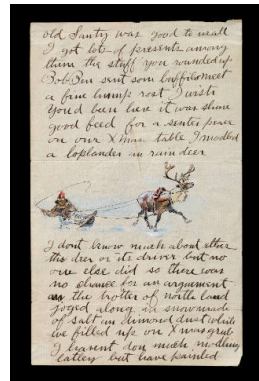 old Santy was good to us all
I got lots of presents among
them the stuff you rounded up
Bob Pen sent som buffilo meet
a fine hump rost I wish
you'd been here it was shure
good feed for a senter peace
on our Xmas table I modled
a loplander in rain deer
I dont know much about ether
the deer or its driver but no
one else did so there was
no chance for an argument
as the trotter of north land
joged along in snow made
of salt an dimond dust while
we filled up on Xmas grub
I havent don much modling
latley but have painted